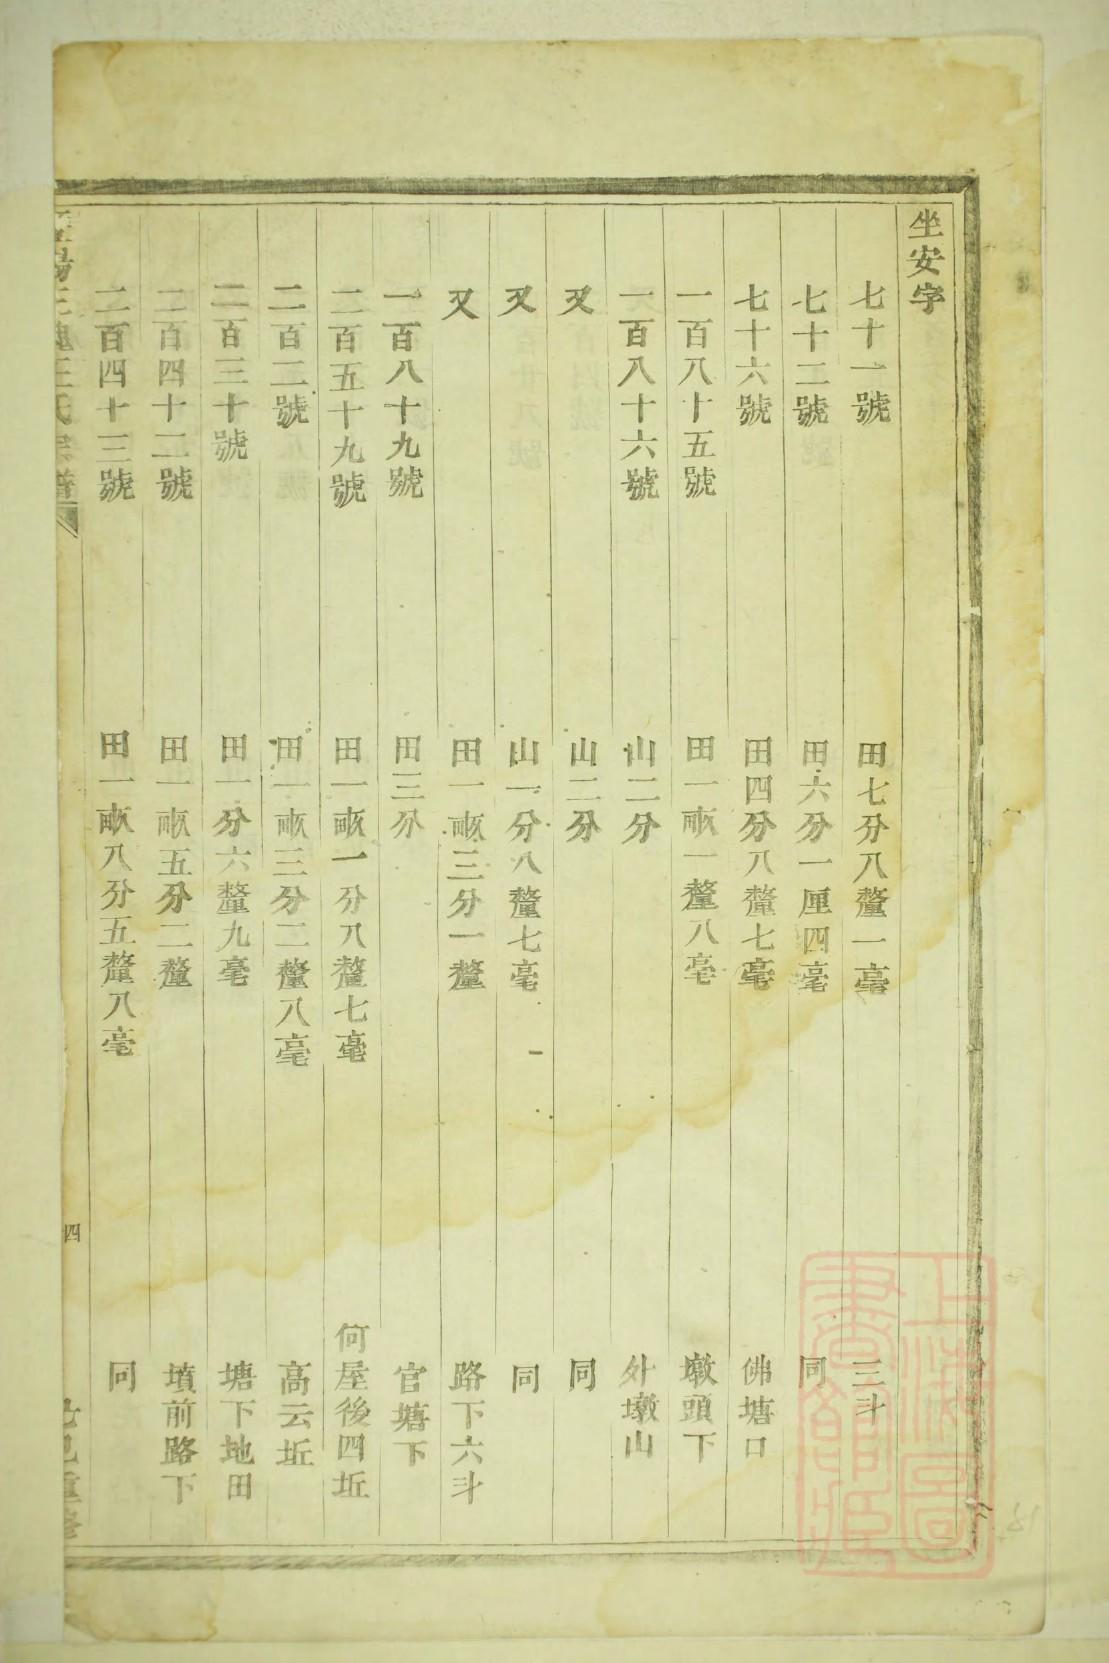 坐安字
七十一號 田七分八釐一毫 三斗
七十二號 田六分一厘四毫 同
七十六號 田四分八釐七毫 佛塘口
一百八十五號 田一畝一釐八毫 墩頭下
一百八十六號 山二分 外墩山
又 山二分 同
又 山一分八釐七毫 同
又 田一畝三分一釐 路下六斗
一百八十九號 田三分 官塘下
二百五十九號 田一畝一分八釐七毫 何屋後四坵
二百二號 田一畝三分二釐八毫 高云坵
二百三十號 田一分六釐九毫 塘下地田
二百四十二號 田一畝五分二釐 墳前路下
二百四十三號 田一畝八分五釐八毫 同
王氏宗譜 四 重修
上海圖書館藏